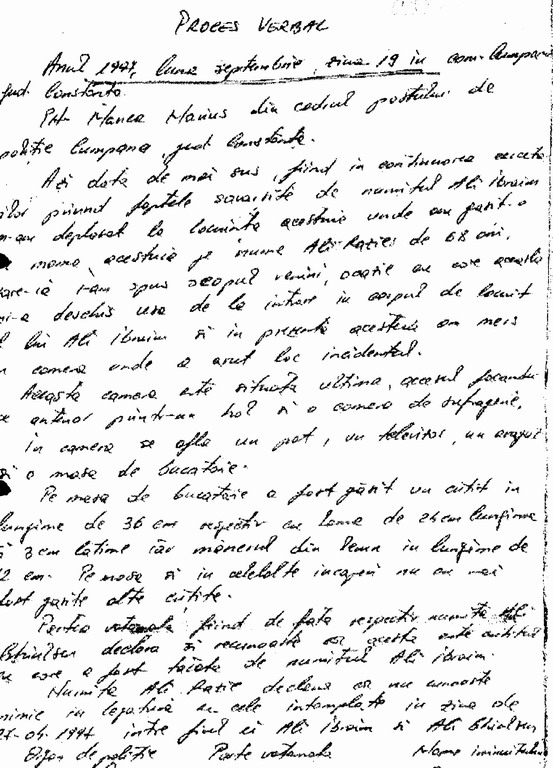 PROCES VERBAL
Anul 1997, luna septembrie, ziua 19 in com. Cumpana
jud. Constanta.
Plt. Manea Marius din cadrul postului de
politie Cumpana, jud. Constanta.
Azi data de mai sus, fiind in continuarea
privind faptele savarsite de numitul Ali Ibraim
m-am deplasat la locuinta acestuia unde am gasit-o
mama acestuia pe nume Ali Razie de 68 ani,
care-ia i-am spus scopul venirii, ocazie cu care aceasta
mi-a deschis usa de la intrare in corpul de locuit
al lui Ali Ibraim si in prezenta acesteia am mers
camera unde a avut loc incidentul.
Aceasta camera este situata ultima, accesul facandu-
se anterior printr-un hol si o camera de sufragerie.
In camera se afla un pat, un televizor, un aragaz
si o masa de bucatarie.
Pe masa de bucatarie a fost gasit un cutit in
lungime de 36 cm respectiv cu lama de 24 cm lungime
si 3 cm latime iar manerul din lemn in lungime de
12 cm. Pe masa si in celelalte incaperi nu au mai
fost gasite alte cutite.
Partea vatamata fiind de fata respectiv numita Ali
declara si recunoaste ca acesta este cutitul
cu care a fost taiata de numitul Ali Ibraim.
Numita Ali Razie declara ca nu cunoaste
nimic in legatura cu cele intamplate in ziua de
1997 intre fiul ei Ali Ibraim si Ali
Organ de politie Parte vatamata Mama